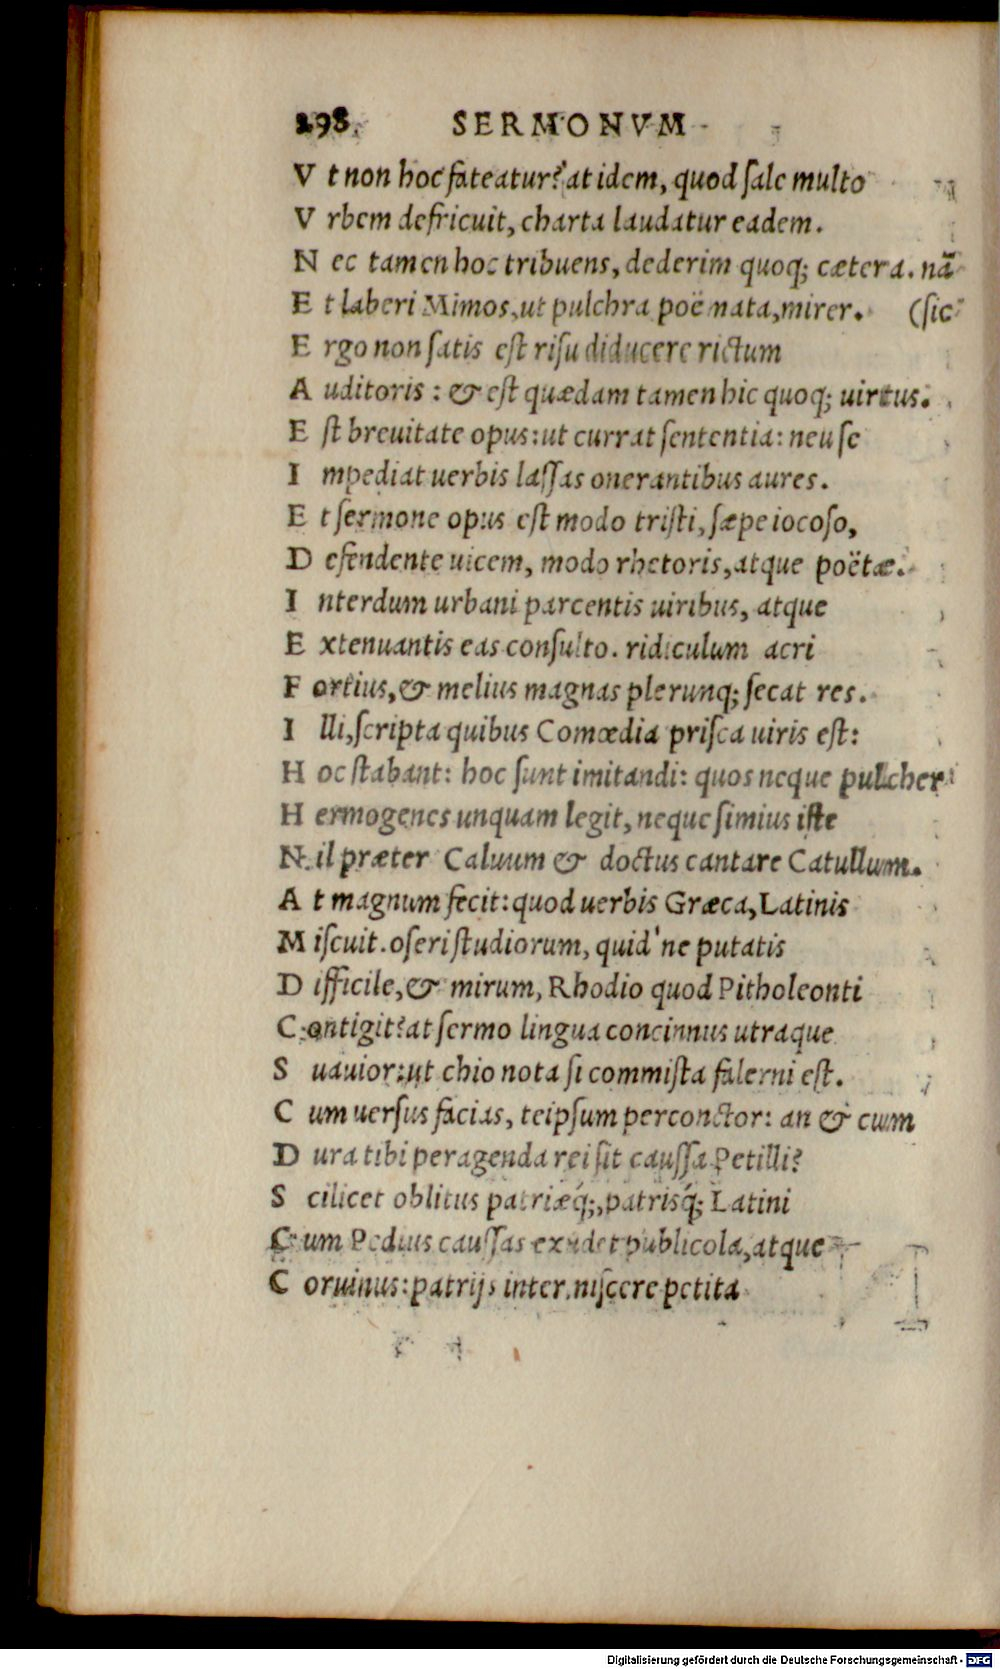 298 SERMONVM
V t non hoc fateatur? at idem, quod ſale multo
V rbem defricuit, charta laudatur eadem.
N ec tamen hoc tribuens, dederim quoq; cætera. nã
E t laberi Mimos, ut pulchra poëmata, mirer. (ſic
E rgo non ſatis eſt riſu diducere rictum
A uditoris: & eſt quædam tamen hic quoq; uirtus.
E ſt breuitate opus: ut currat ſententia: neu ſe
I mpediat uerbis laſſas onerantibus aures.
E t ſermone opus eſt modo triſti, ſæpe iocoſo,
D efendente uicem, modo rhetoris, atque poëtæ.
I nterdum urbani parcentis uiribus, atque
E xtenuantis eas conſulto. ridiculum acri
F ortius, & melius magnas plerunq; ſecat res.
I lli, ſcripta quibus Comœdia priſca uiris eſt:
H oc ſtabant: hoc ſunt imitandi: quos neque pulcher
H ermogenes unquam legit, neque ſimius iſte
N il præter Caluum & doctus cantare Catullum.
A t magnum fecit: quod uerbis Græca, Latinis
M iſcuit. o ſeri ſtudiorum, quid'ne putatis
D ifficile, & mirum, Rhodio quod Pitholeonti
C ontigit? at ſermo lingua concinnus utraque
S uauior: ut chio nota ſi commiſta falerni eſt.
C um uerſus facias, teipſum perconctor: an & cum
D ura tibi peragenda rei ſit cauſſa Petilli?
S cilicet oblitus patriæq́;, patrisq́; Latini
C um Pedius cauſſas exudet publicola, atque
C oruinus: patrijs intermiſcere petita
Digitalisierung gefördert durch die Deutsche Forschungsgemeinschaft - DFG